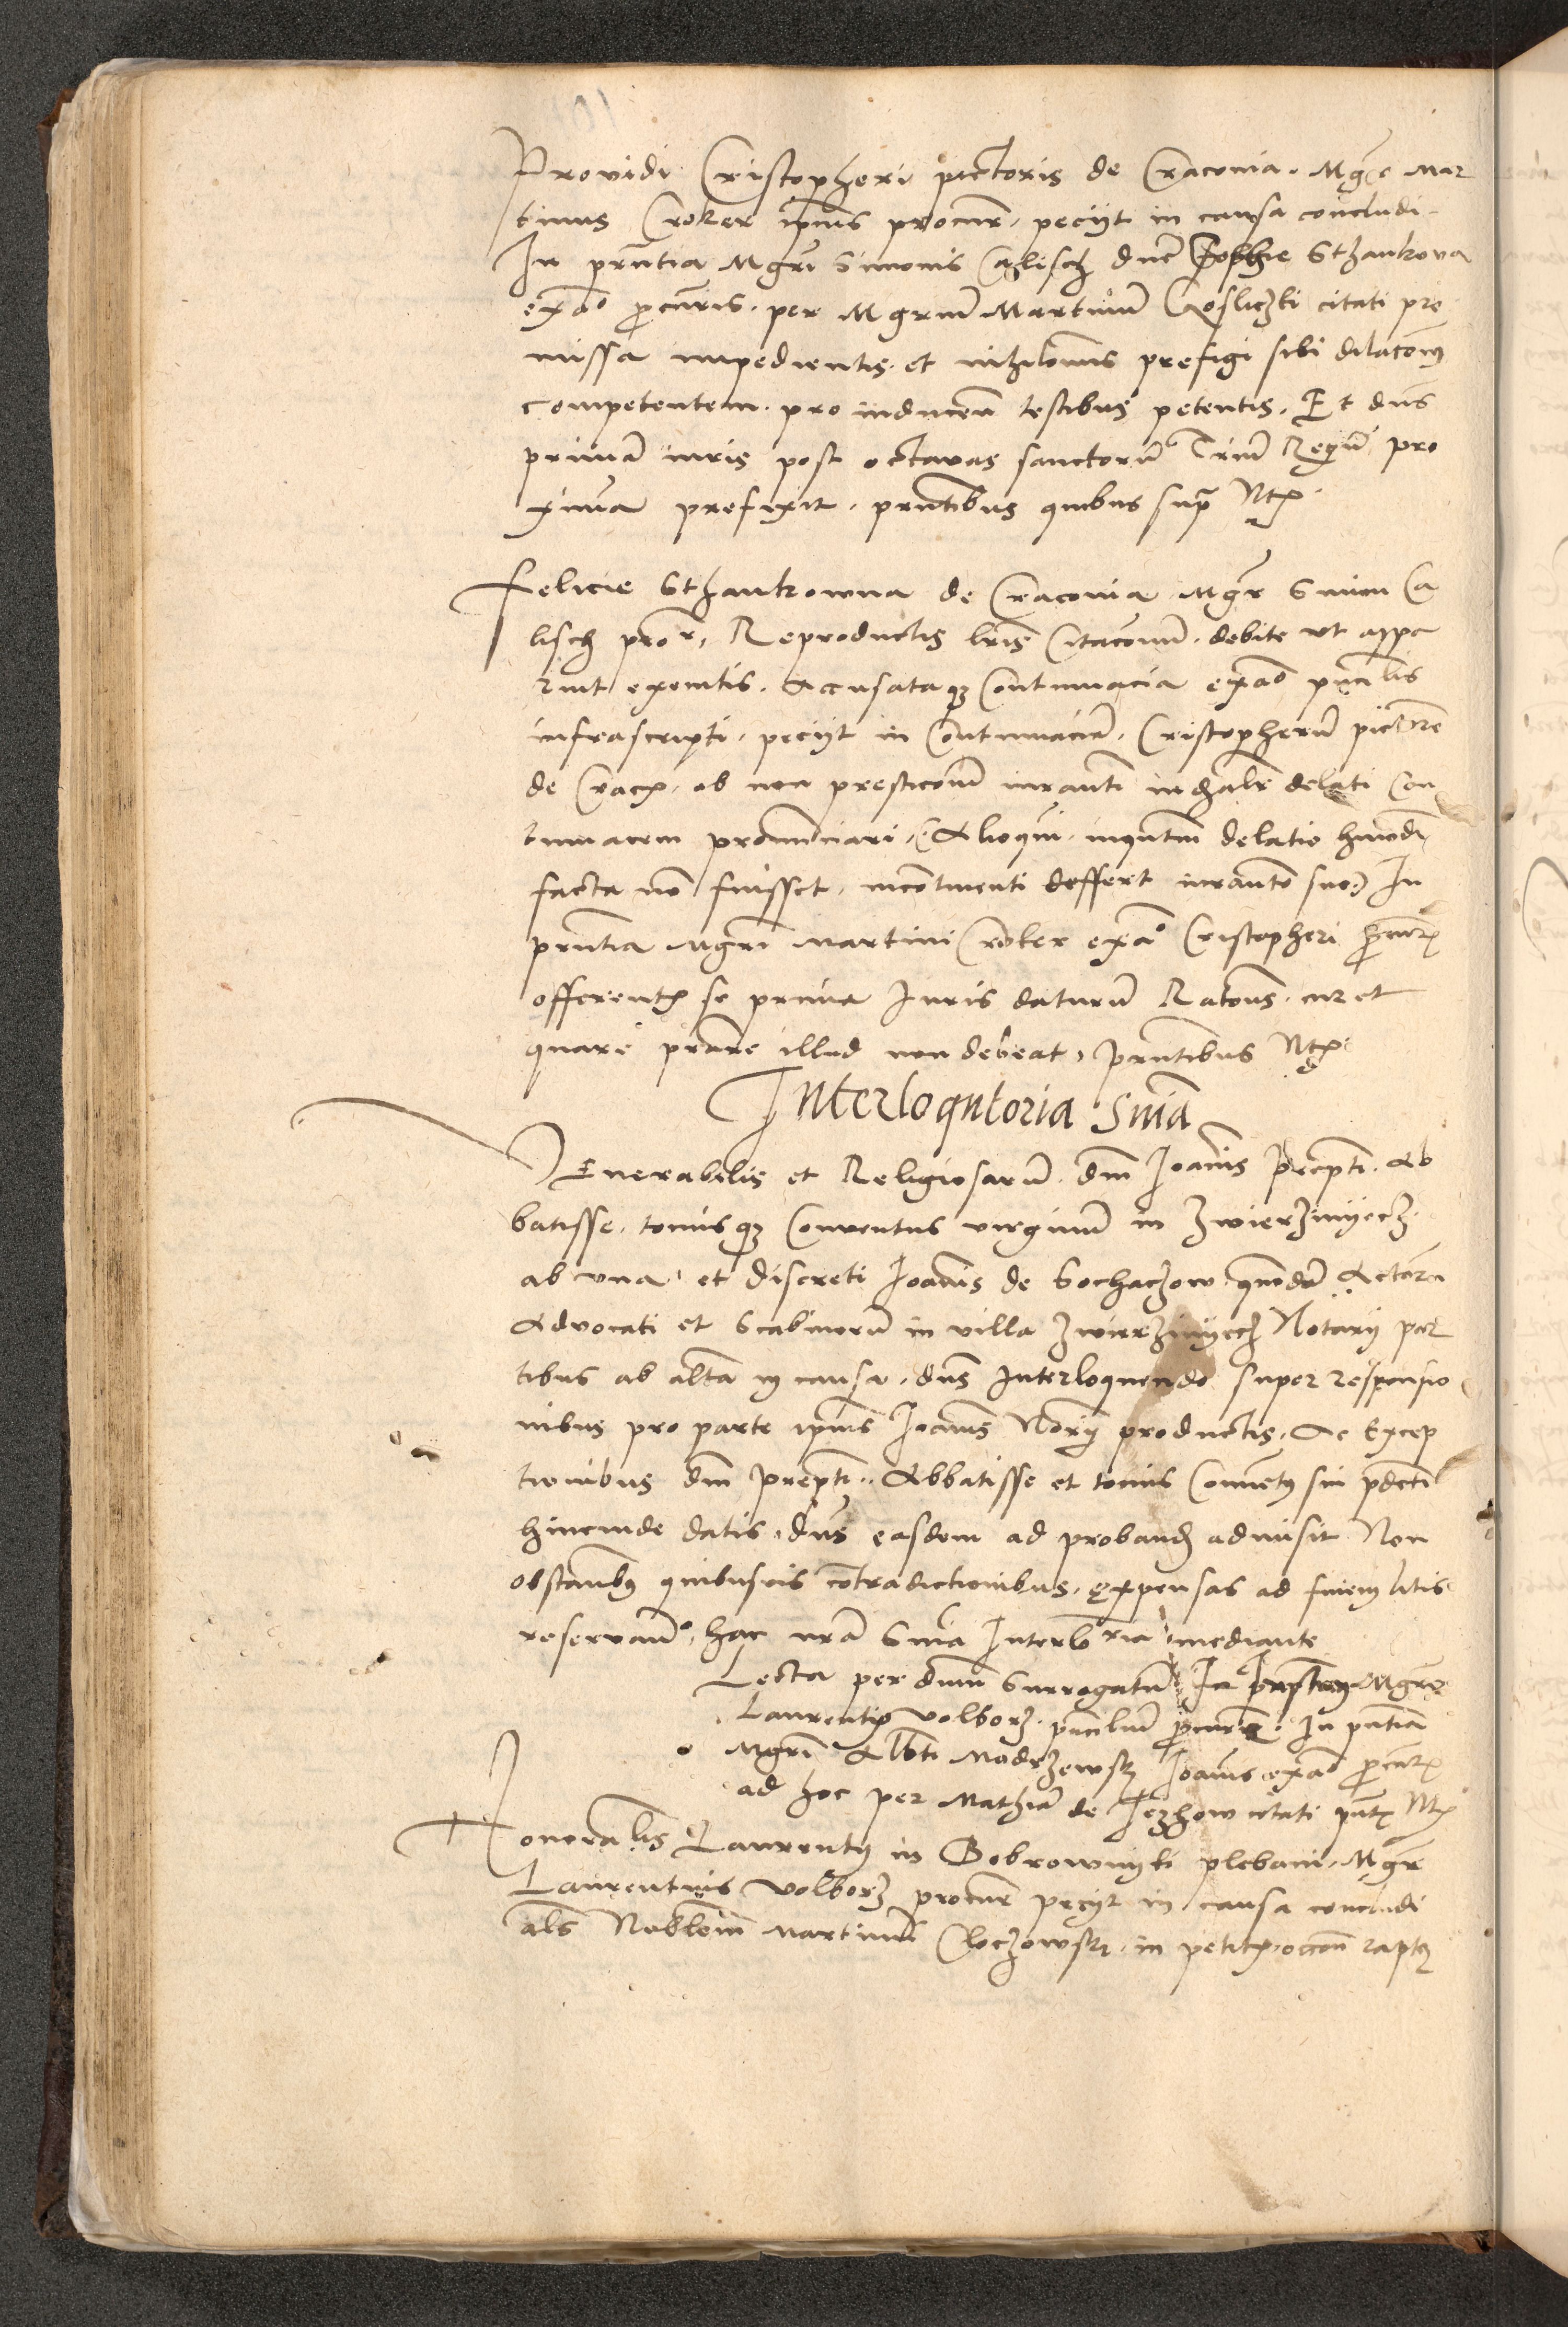 Providi Cristopheri pictoris de Cracovia. Mgr Mar
tinus Croker ipius procur. peciit in causa concludi.
In prntia Mgri Simonis Calisch dne Sophie Sthankowa
exao procuris. per Mgrum Martinum citati pre
missa impedientis et nihilomis prefigi sibi dilacoem
competentem. pro inducen testibus petentis. Et dns
primam iuris post octavas sanctorum Trium Regum pro
xima prefixit. prntibus quibus supra Ntx
Felicie Sthankowna de Cracovia Mgr Simon Ca
lisch procr. Reproductis lris Citacionum. debite ut appa
ruit executis. Accusataqz Contumacia exao principalis
infrascripti. peciit in Contumaciam. Cristopherum pictorem
de Cracx. ob non presticonem iuramti delati Con
tumacem pronunciari. Alioqui. inquntum delatio hmodi
facta non fuisset. incontinenti deffert iuramto suo) In
prntia Mgri Martini Croker exao Cristopheri procurx
offerentx se prima Iuris daturum Ratoems. cur et
quare prare illud non debeat. Prntibus Ntx
Interloqutoria Snia
Venerabilis et Religiosarum. dnm Ioannis Precpti. Ab
batisse. tociusqz Conventus virginum in Zwierziniyecz.
ab una. et discreti Ioannis de Sochaczow quondam Actorum
Advocati et Scabinorum in villa Zwierziniyecz Notarii par
tibus ab alta in causa. dns Interloquendo super responsio
nibus pro parte ipius Ioannis Norii productis. Ac Excep
tionibus dnm Prepti. Abbatisse et tocius Conventus sui pdcti
hincinde datis. dns easdem ad proband admisit Non
obstantibus quibusvis contradictionibus. expensas ad finem litis
reservan. hac nra Snia Interlria mediante
Lecta per dnum Surrogatum In Mgri
Laurentii Volborz. principalium procurx. In pntia
Mgri Albti Modrzewsky Ioannis exao procurx
ad hoc per Mathiam de Iezzow citati pntx Ntx
Honorabilis Laurentii in Bobrowniki plebani. Mgr
Laurentius Volborz procur peciit in causa concludi
als Nobilem Martinum Cloczowsky. in petitx. occoem raptus